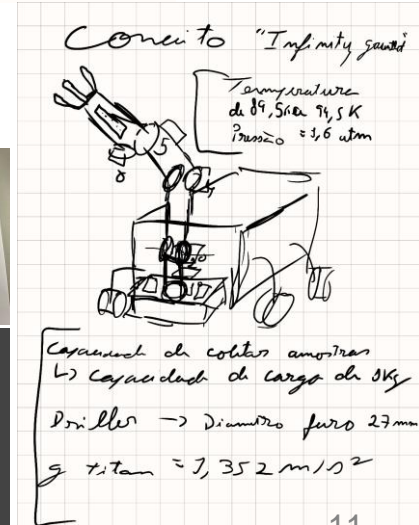 Conceito "Infinity gauntlet"
Temperatura
de 89,5K a 94,5 K
Pressão = 1,6 atm
5
Capacidade de coletar amostras
↳ Capacidade de carga de
Driller → Diametro furo 27 mm
g titan = 1,352 m/s²
11